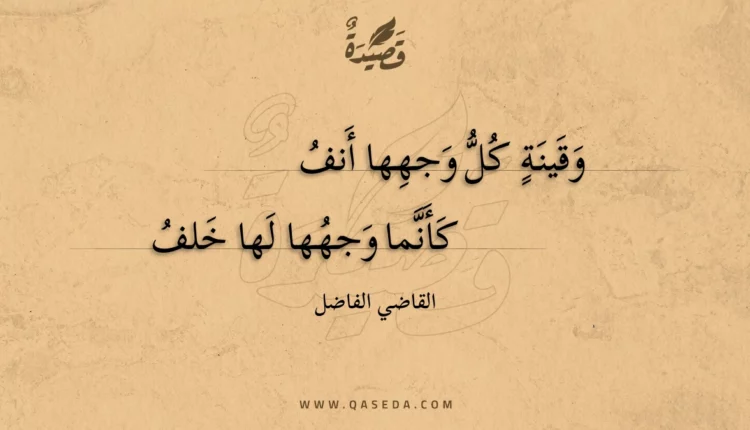 قَصِيدَةٌ
وَقَينَةٍ كُلُّ وَجهِها أَنفُ
كَأَنَّما وَجهُها لَها خَلفُ
القاضي الفاضل
WWW.QASEDA.COM